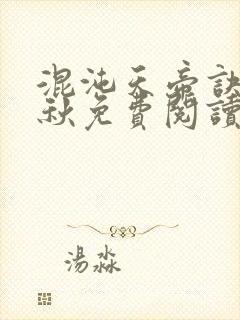 混沌天帝訣
秋免費閱讀
湯淼